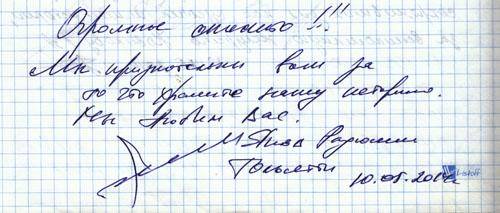 Огромное спасибо!!!
Мы признательны вам за
то что храните нашу историю.
Мы любим Вас.
Тольятти
10.05.